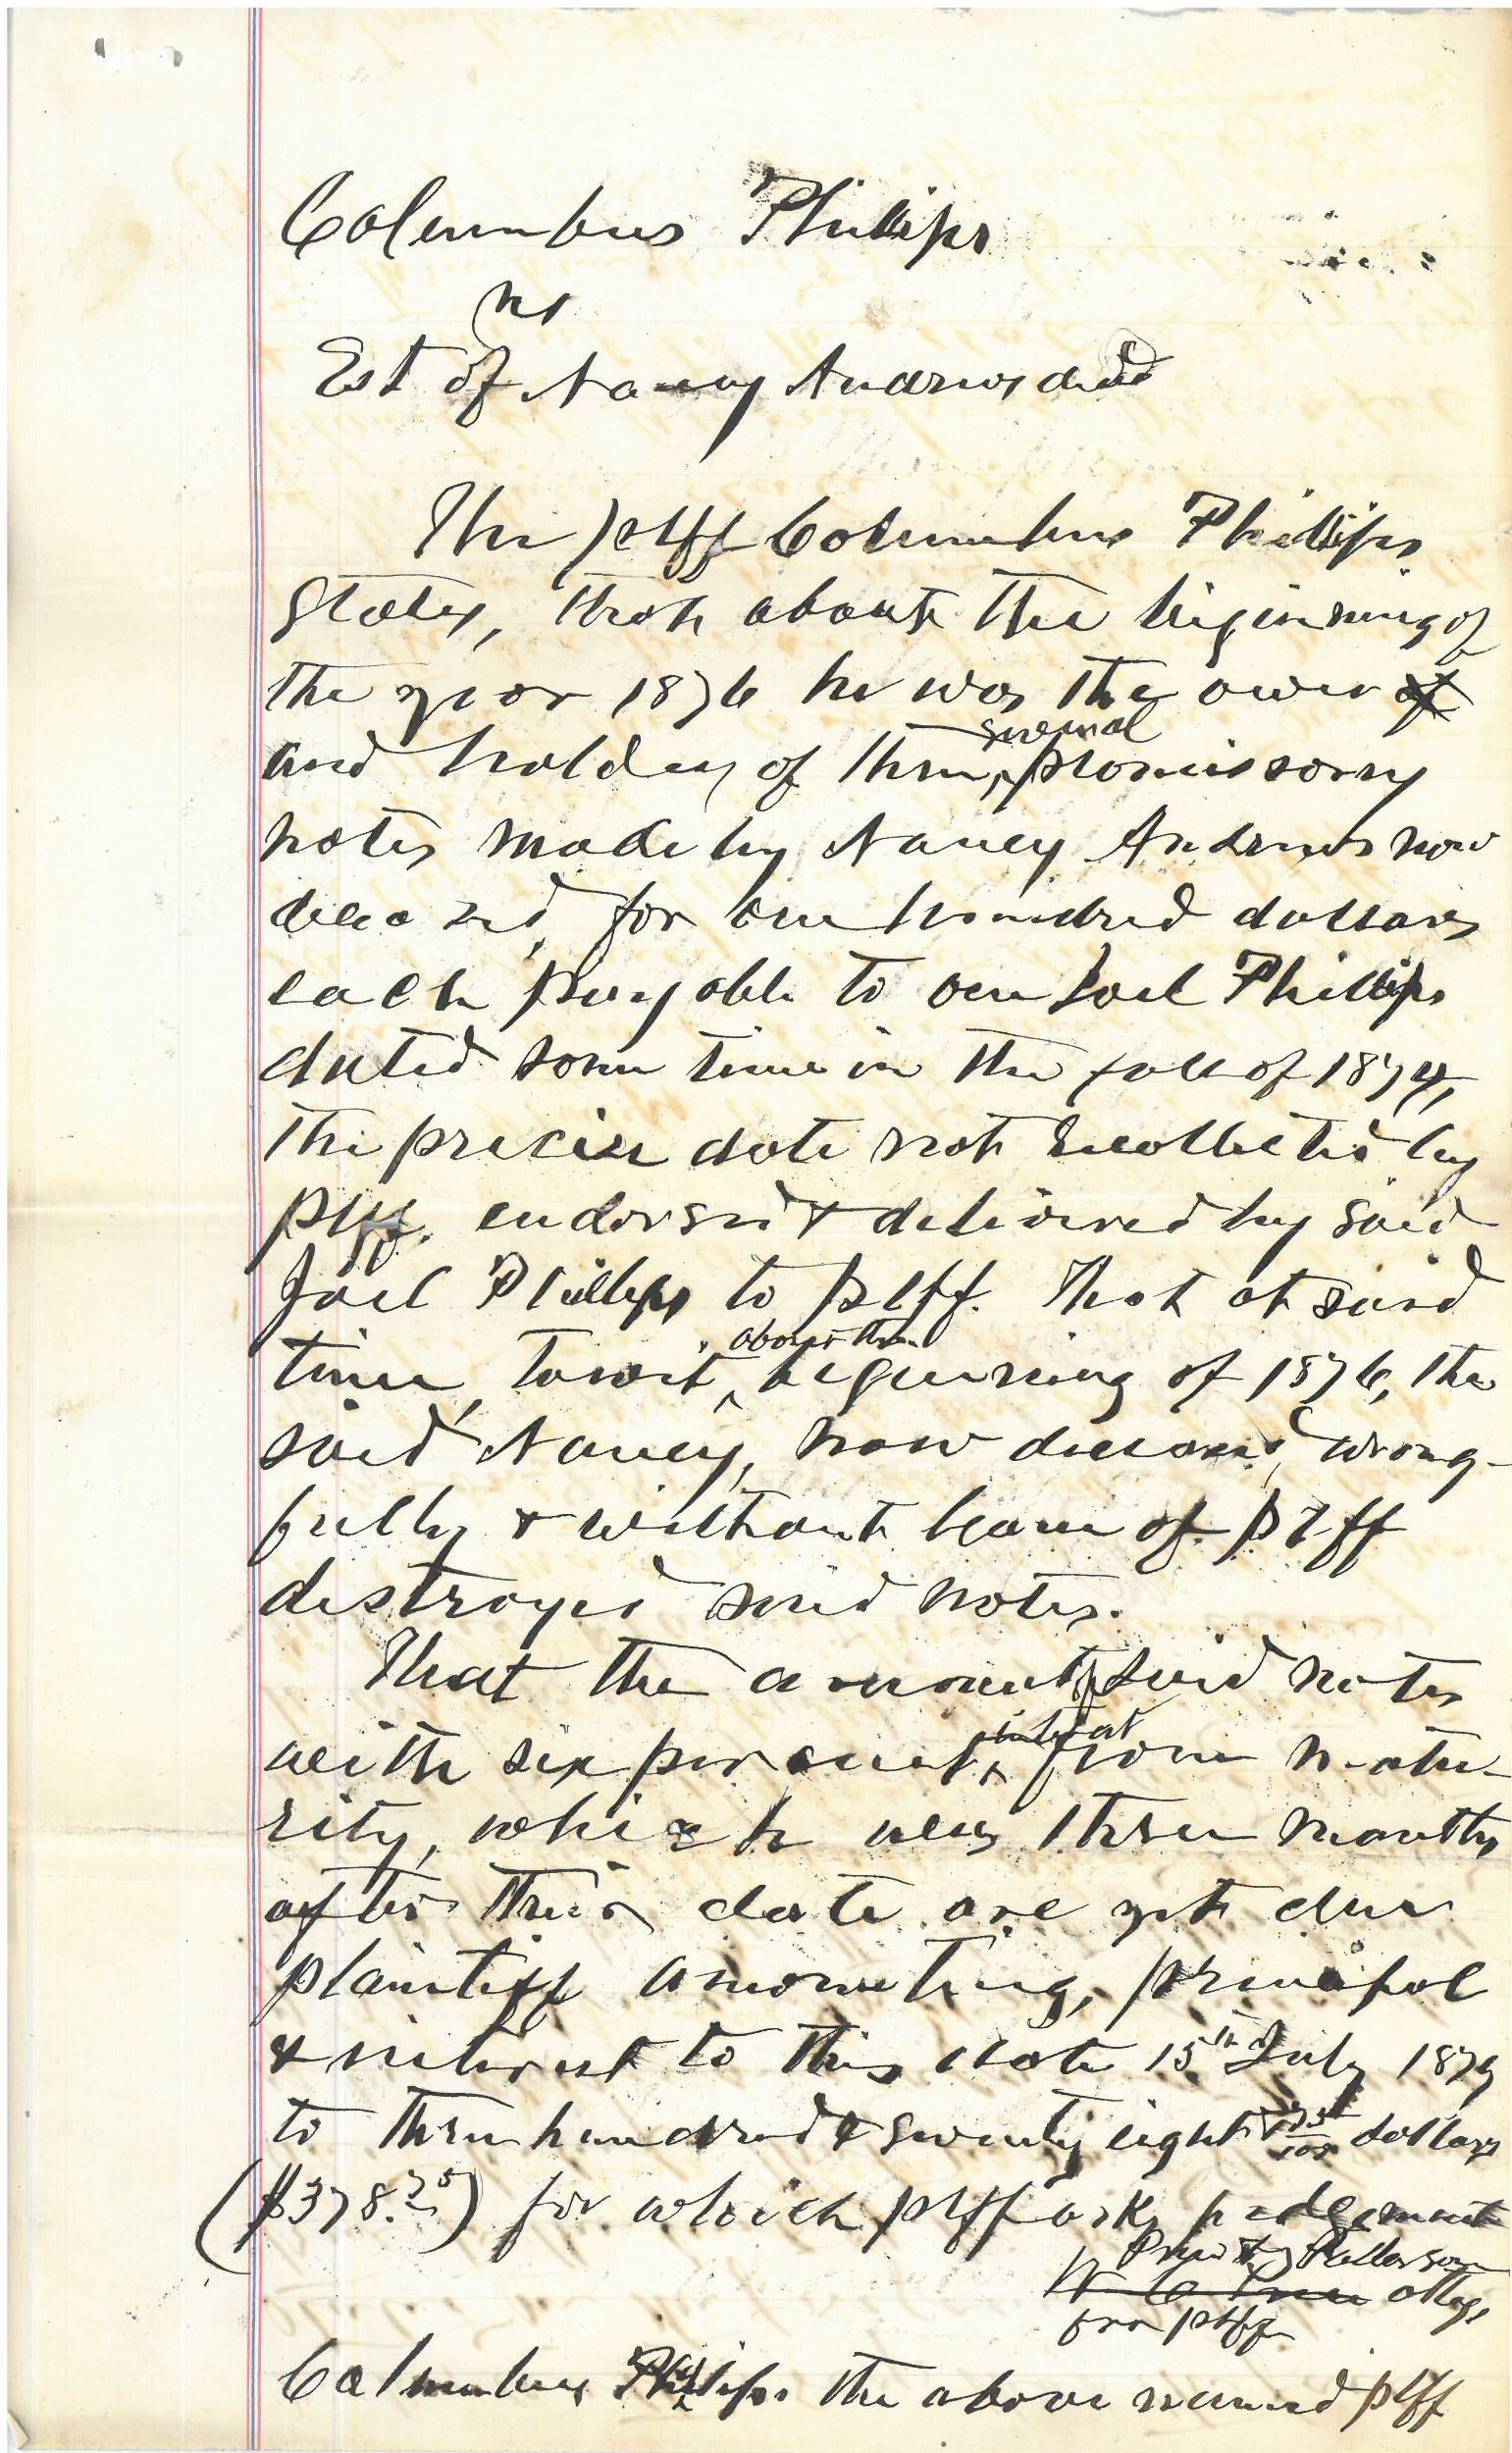 Columbus Phillips
vs
Est of Nancy Andrews decd
The plff Columbus Phillips
States, that about the beginning of
the year 1876 he was the owner of
and holder of three, several promissory
notes made by Nancy Andrews now
deceased, for one hundred dollars
each payable to one Joel Phillips
dated some time in the fall of 1874,
the precise date not recollected by
plff. endorsed & delivered by said
Joel Phillips to plff. That at said
time, towit, about the beginning of 1876, the
said Nancy, now deceased, wrong-
fully & without leave of plff
destroyed said notes.
That the amount of said notes
with six per cent interest from matu-
rity, which was three months
after their date are yet due
plaintiff amounting, principal
& interest to this date 15th July 1879
to three hundred & seventy eight & 75/100 dollars
($378.75) for which plff asks judgement
& Patterson
W C attys
for plff
Columbus Phillips the above named plff